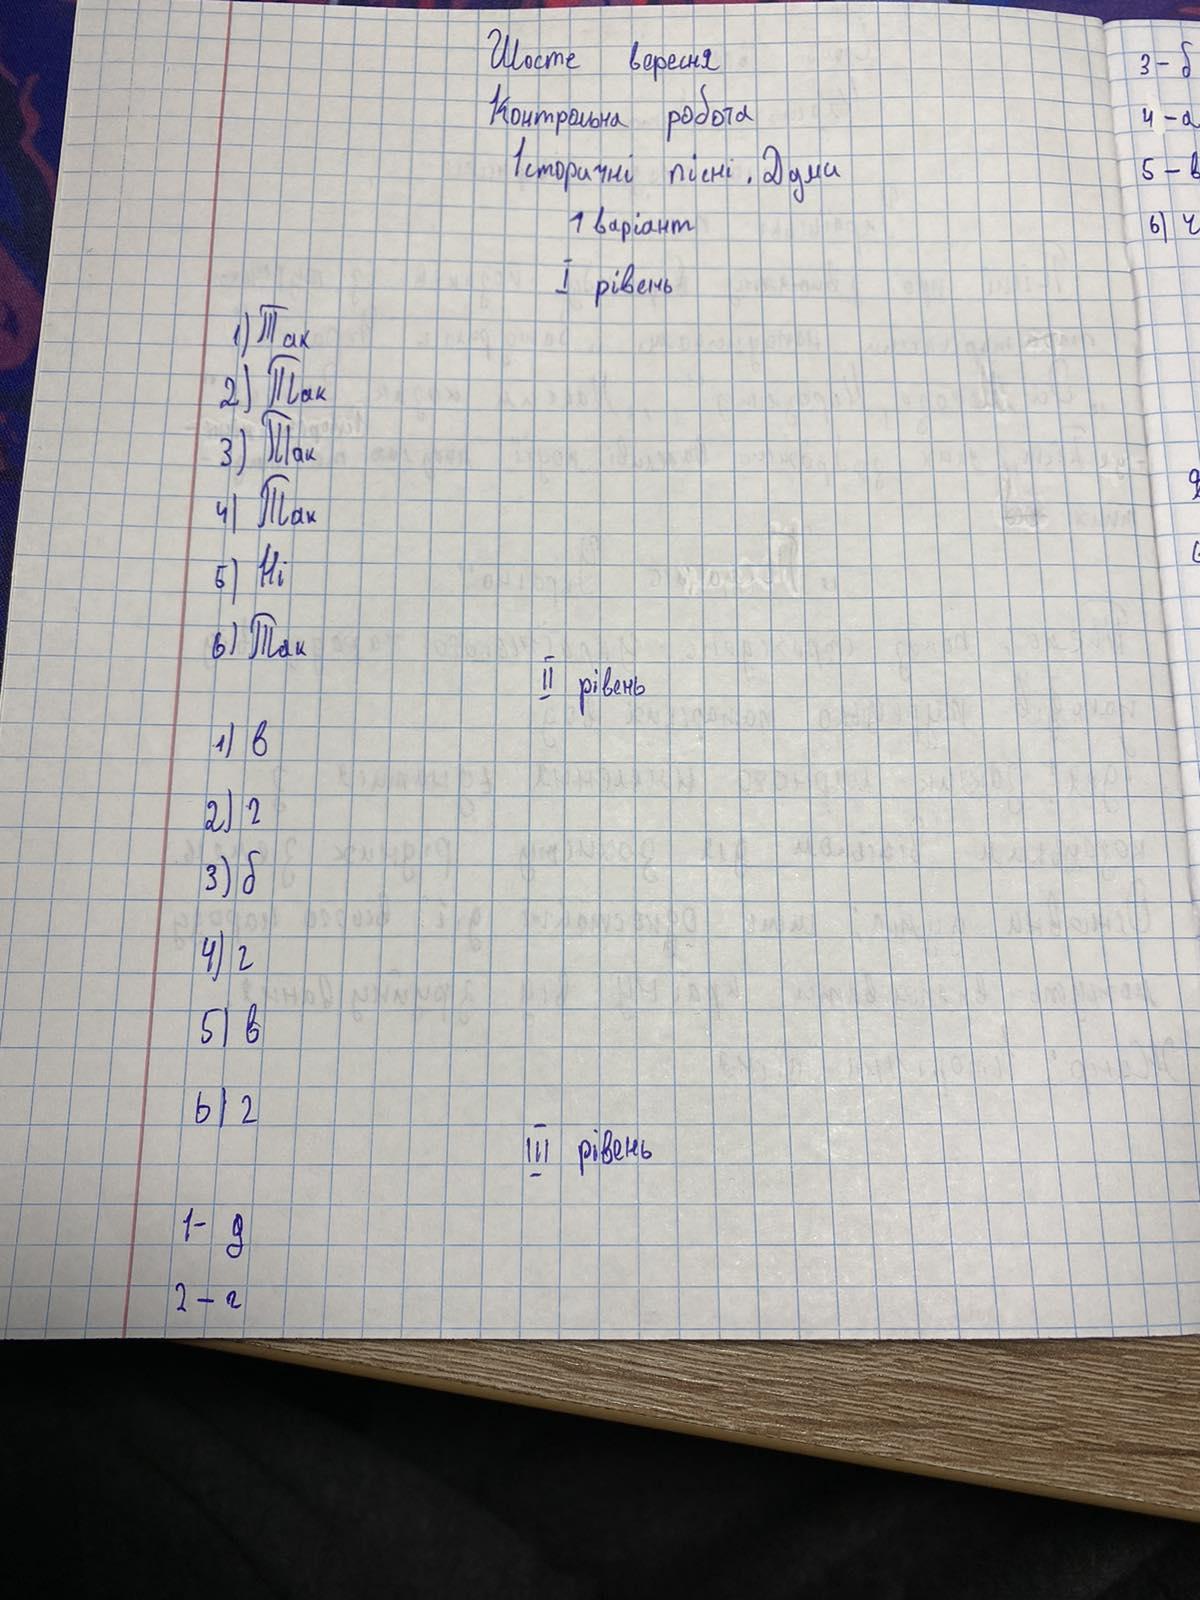 Шосте вересня
Контрольна робота
Історичні пісні. Думи
1 варіант
І рівень
1) Так
2) Так
3) Так
4) Так
5) Ні
6) Так
ІІ рівень
1) в
2) г
3) б
4) г
5) в
6) г
ІІІ рівень
1- д
2 - г
3 - б
4 - а
5 - в
6)